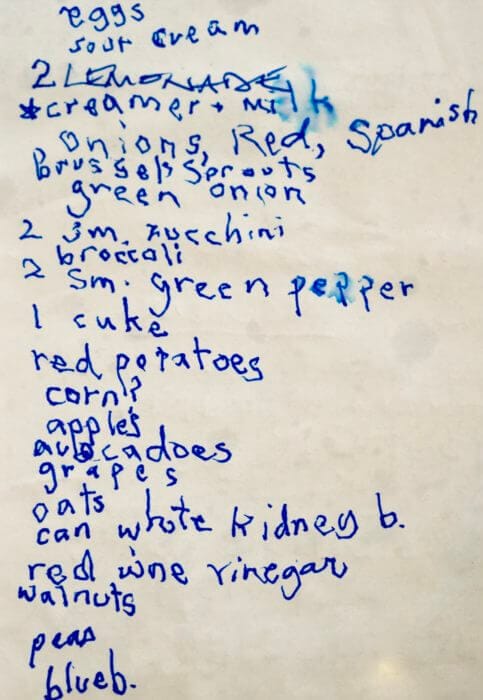 eggs
sour cream
2 LEMONADE
*creamer + Milk
Onions, Red, Spanish
Brussels Sprouts
green onion
2 sm. zucchini
broccali
2 sm. green pepper
1 cuke
red potatoes
corn?
apples
avocadoes
grapes
oats
can white kidney b.
red wine vinegar
walnuts
peas
blueb.